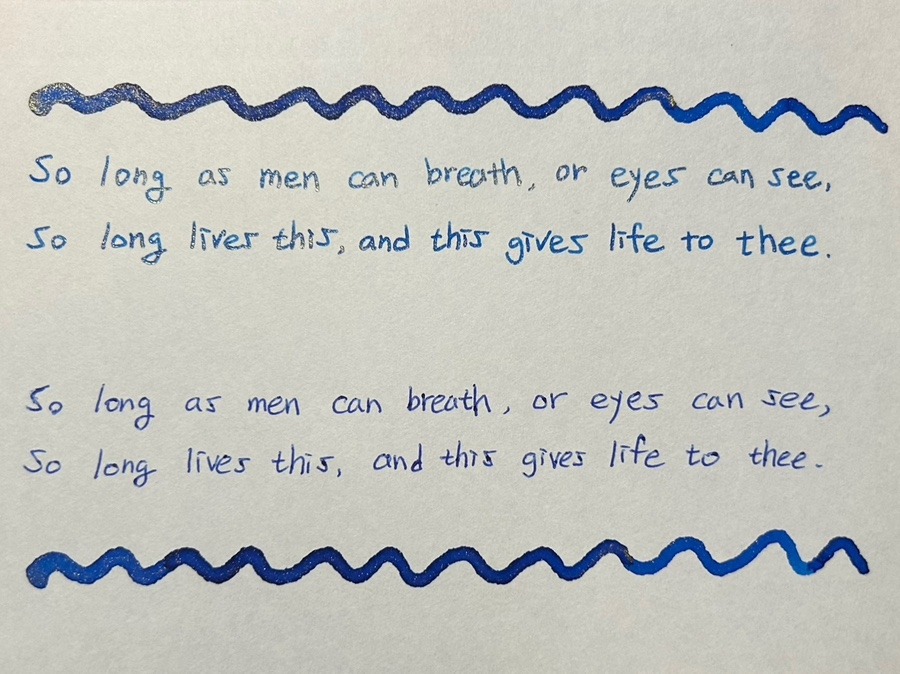 So long as men can breath, or eyes can see,
So long lives this, and this gives life to thee.
So long as men can breath, or eyes can see,
So long lives this, and this gives life to thee.